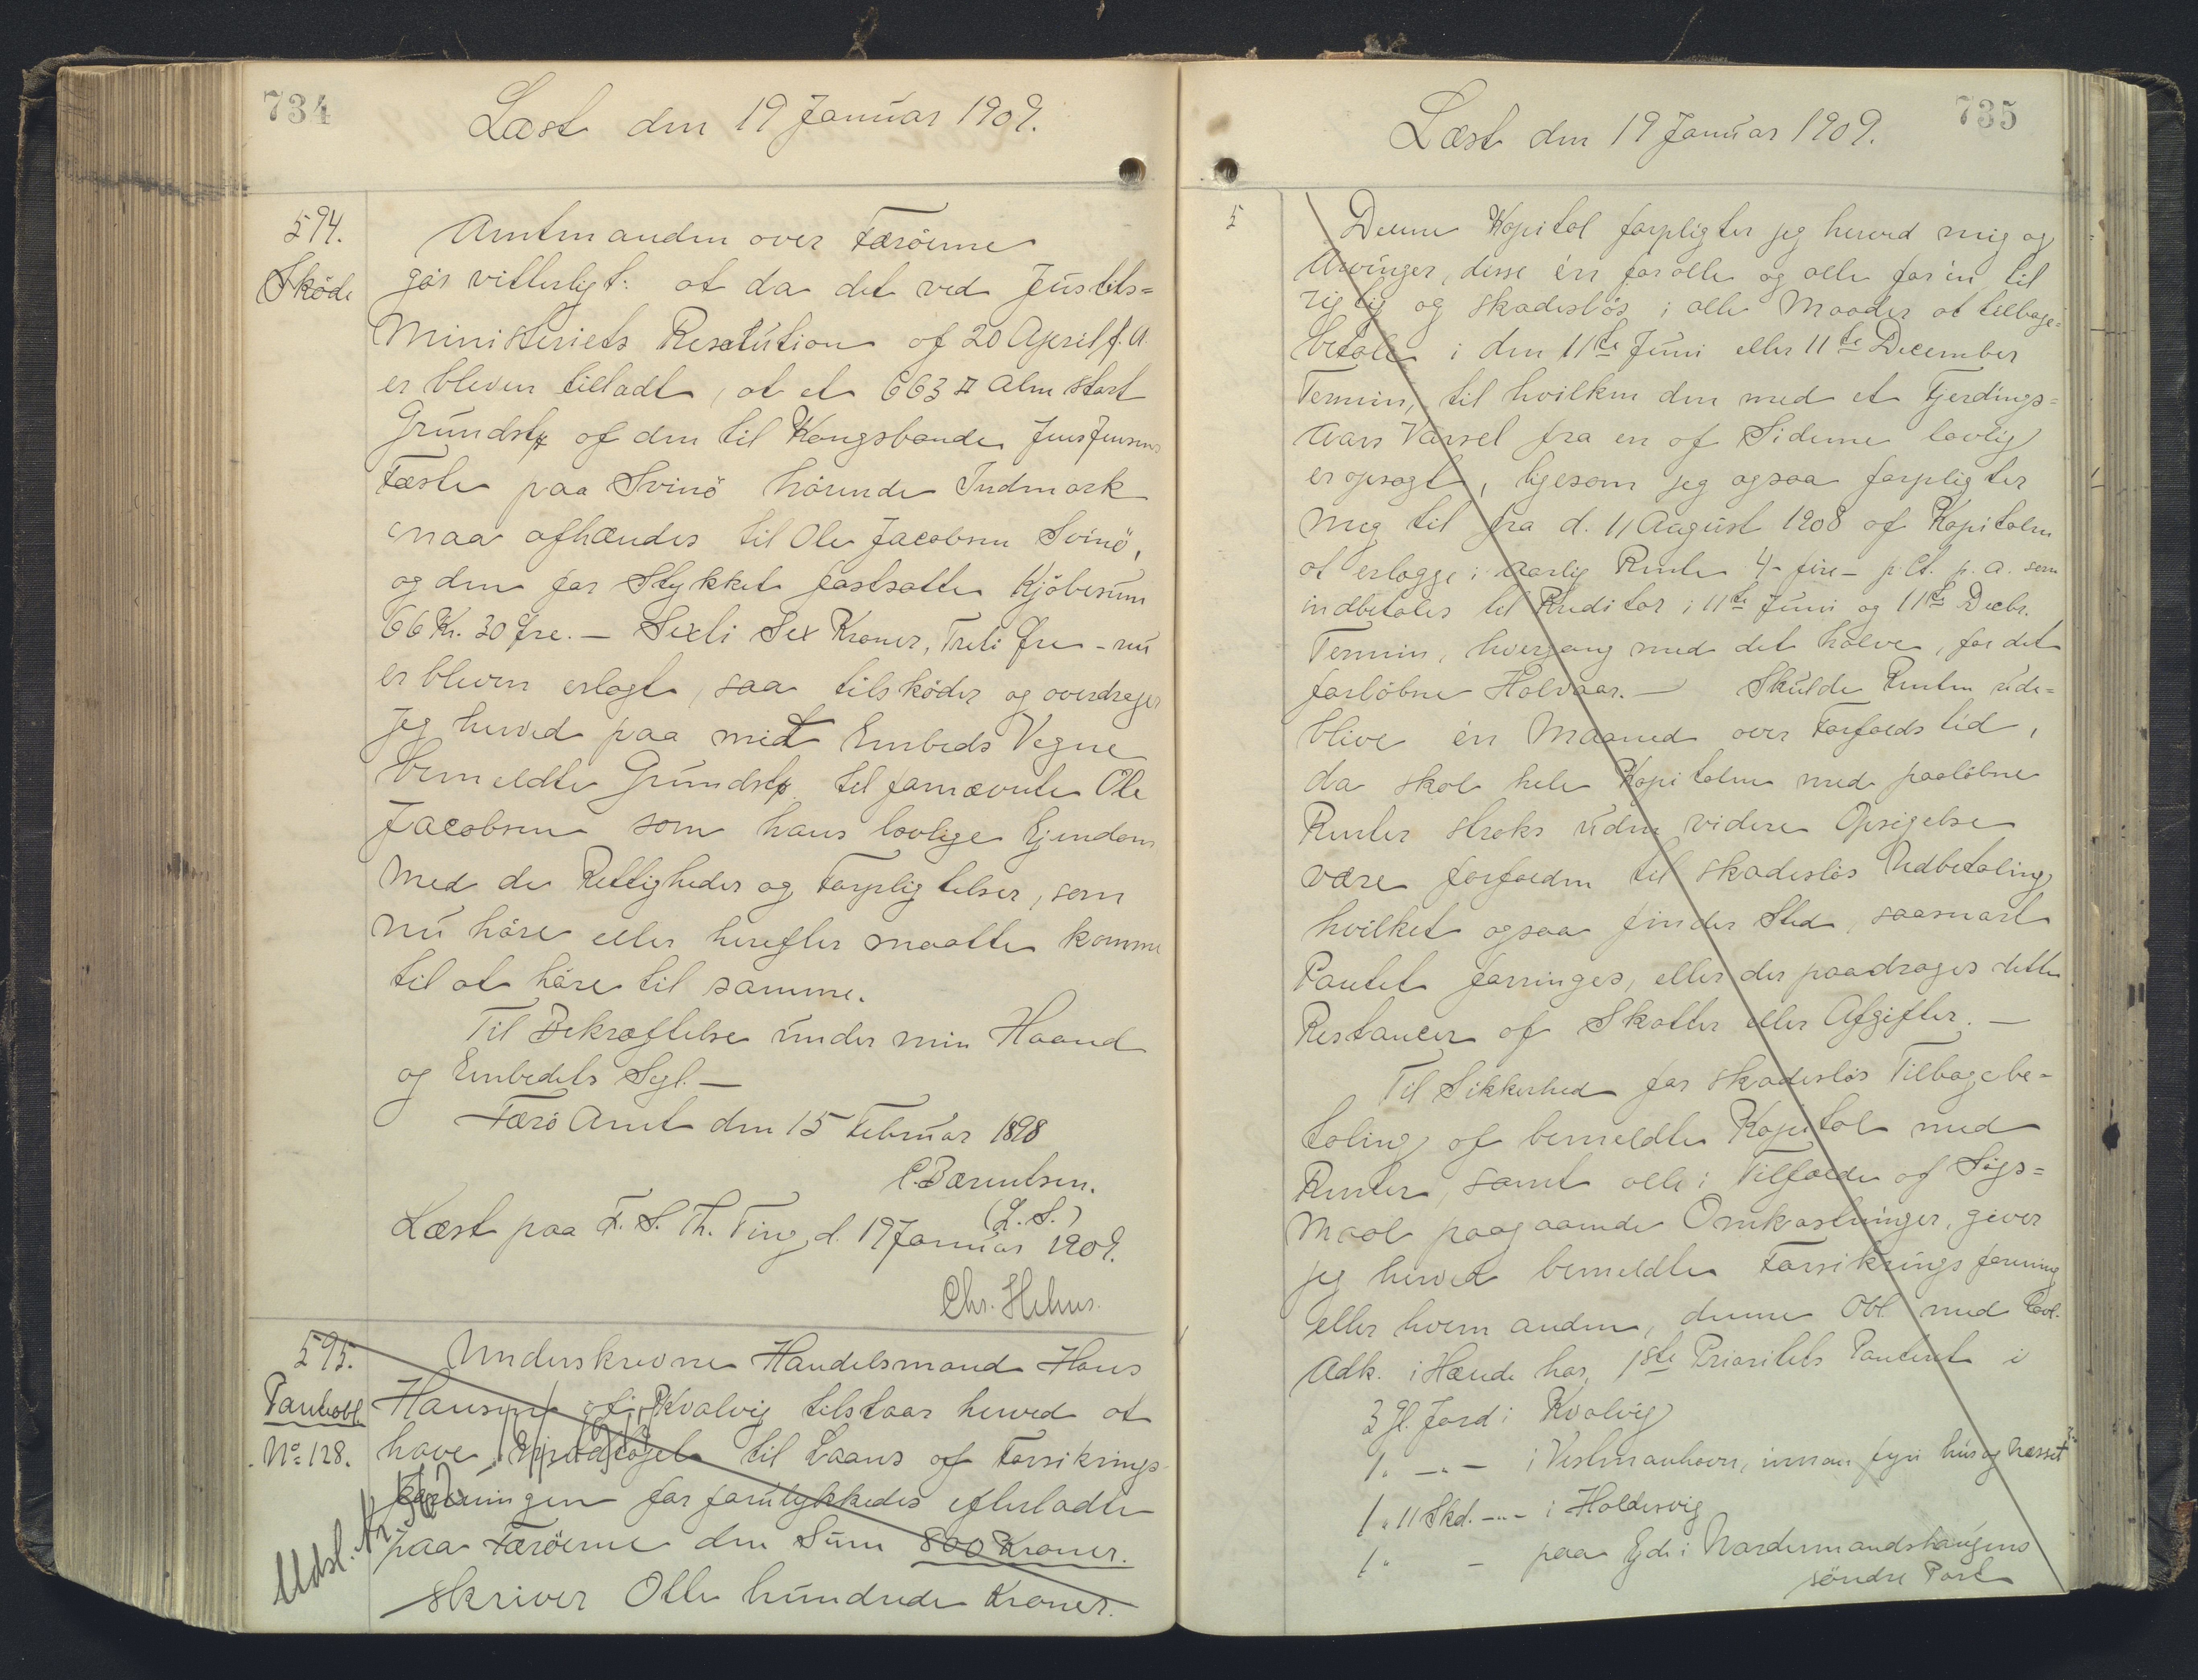 734
Læst den 19 Januar 1909.
594.
Sköde
Amtmanden over Færöerne
gör vitterligt: at da det ved Justits=
Ministeriets Resolution af 20 April f. A.
er bleven tilladt, at et 663 □ Alm stort
Grundstk af den til Kongsbonde Jens Jensens
Fæste paa Svinö hörende Indmark
maa afhændes til Ole Jacobsen Svinö,
og den for Stykket fastsatte Kjöbesum
66 Kr. 30 Øre. — Sexti Sex Kroner, Treti Øre - nu
er bleven erlagt, saa tilsköder og overdrager
jeg herved paa mit Embeds Vegne
bemeldte Grundstk. til fornævnte Ole
Jacobsen som hans lovlige Ejendom
med de Rettigheder og Forpligtelser, som
nu höre eller herefter maatte komme
til at höre til samme.
Til Bekræftelse under min Haand
og Embedets Segl. —
Færö Amt den 15 Februar 1898
C. Bærentsen.
(L. S.)
Læst paa F. S. Th. Ting, d. 19 Januar 1909.
595.
Pantobl.
No 128.
Underskrevne Handelsmand Hans
Hansen af Kvalvig tilstaar herved at
have modtaget til Laans af Forsikrings-
foreningen for forulykkedes efterladte
paa Færöerne den Sum 800 Kroner.
skriver Otte hundrede Kroner.
Udsl.
735
Læst den 19 Januar 1909.
5
Denne Kapital forpligter jeg herved mig og
Arvinger, disse én for alle og alle for én, til
rigtig og skadeslös i alle Maader at tilbage=
betale i den 11te Juni eller 11te December
Termin, til hvilken den med et Fjerdings=
Aars Varsel fra en af Siderne lovlig
er opsagt, ligesom jeg ogsaa forpligter
mig til fra d. 11 August 1908 af Kapitalen
at erlægge i aarlig Rente 4 - fire - p. Ct. p. a. som
indbetales til Kreditor i 11te Juni og 11te Decbr.
Termin, hvergang med det halve, for det
forlöbne Halvaar. — Skulde Renten ude=
blive én Maaned over Forfaldstid,
da skal hele Kapitalen med paalöbne
Renter straks uden videre Opsigelse
være forfalden til skadeslös Udbetaling
hvilket ogsaa finder Sted, saasnart
Pantet forringes, eller der paadrages dette
Restancer af Skatter eller Afgifter. —
Til Sikkerhed for skadeslös Tilbagebe-
taling af bemeldte Kapital med
Renter, samt alle i Tilfælde af Sögs=
maal paagaaende Omkostninger, giver
jeg herved bemeldte Forsikringsforening
eller hvem anden, denne Obl. med Lovl.
Adk. i Hænde har, 1ste Prioritets Panteret i
3 Gl. Jord i Kvalvig
1 " — " — i Vestmanhavn, innan fyri hús og Nesset
1 " 11 Skd. — " — i Haldersvig
1 " — paa Ejde i Nordermandshaugens
söndre Part